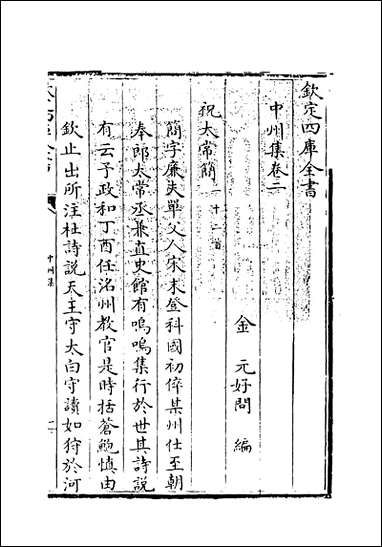 欽定四庫全書
中州集卷二
金 元好問 編
祝太常簡 十二首
簡字廉夫單父人宋末登科國初倅某州仕至朝
奉郎太常丞兼直史館有嗚嗚集行於世其詩說
有云予政和丁酉任洺州教官是時括蒼鮑慎由
欽止出所注杜詩說天王守太白守讀如狩於河
中州集